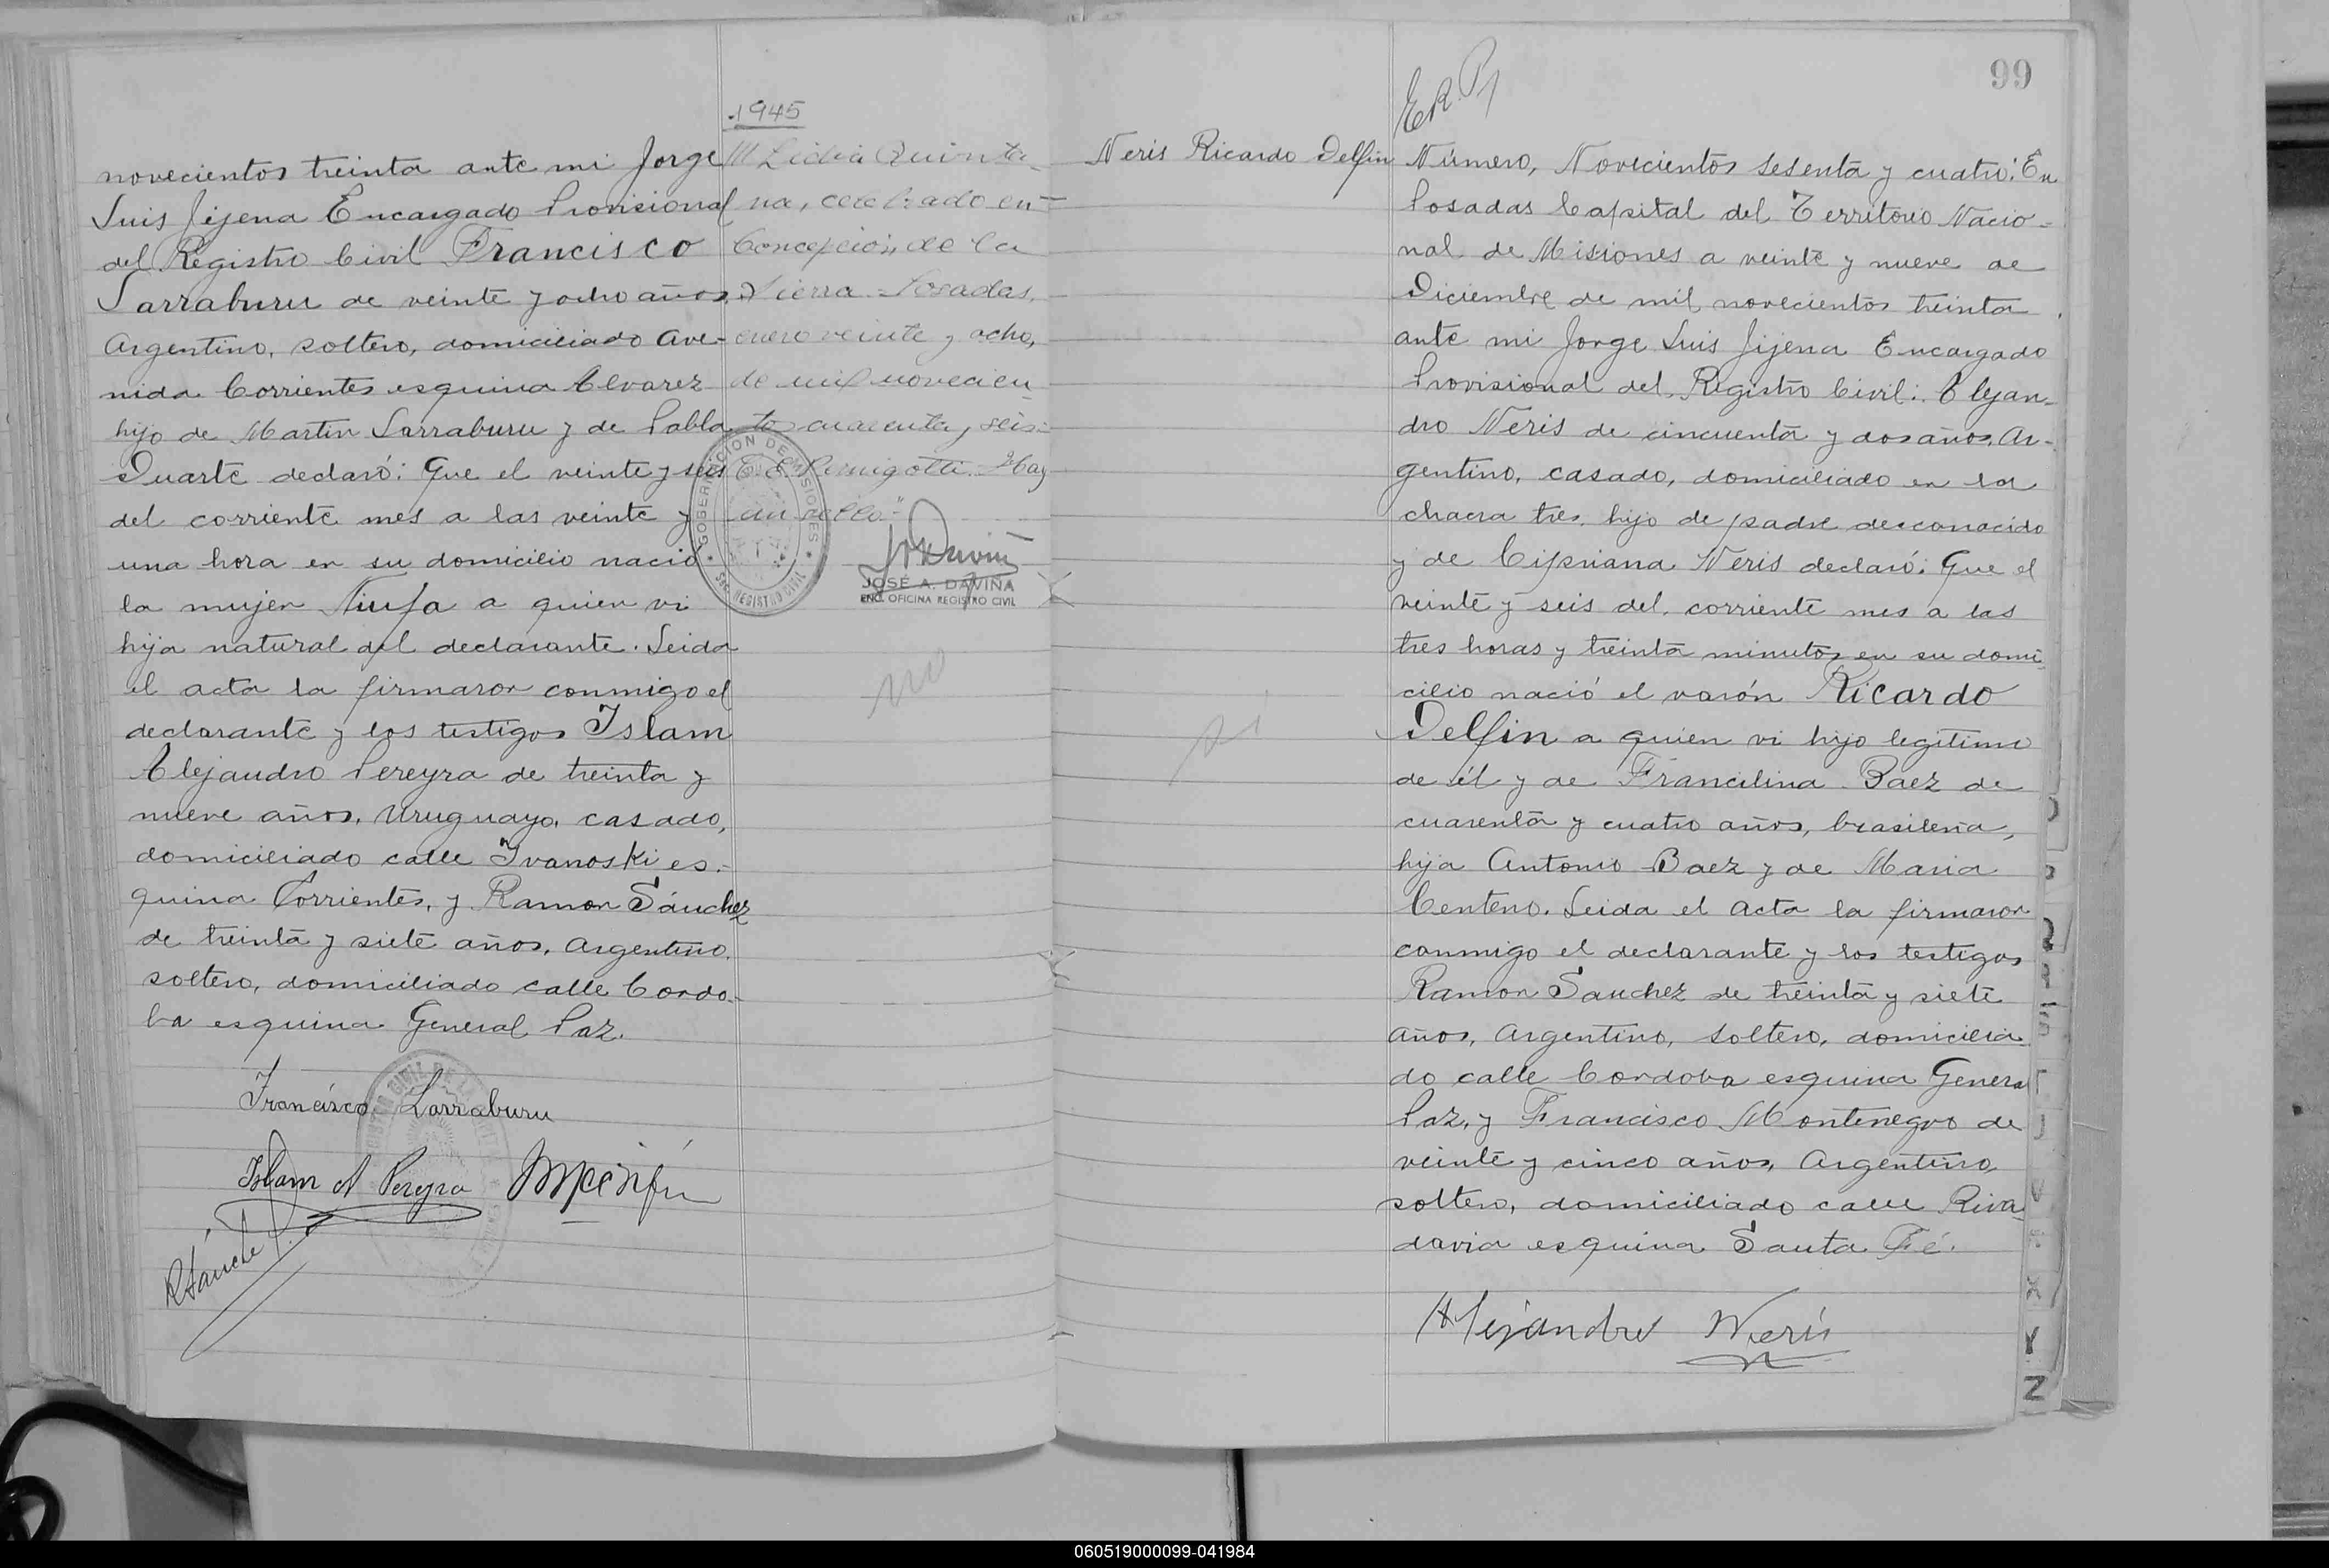 novecientos treinta ante mi Jorge
Luis Jijena Encargado Provisional
del Registro Civil Francisco
Larraburu de veinte y ocho años
Argentino, soltero, domiciliado Ave-
nida Corrientes esquina Alvarez
hijo de Martin Larraburu y de Pabla
Duarte declaró: Que el veinte y seis
del corriente mes a las veinte y
una hora en su domicilio nació
la mujer a quien vi
hija natural del declarante. Leida
el acta la firmaron conmigo el
declarante y los testigos Islam
Alejandro Pereyra de treinta y
nueve años, Uruguayo, casado,
domiciliado calle Ivanoski es-
quina Corrientes, y Ramon Sánchez
de treinta y siete años, Argentino,
soltero, domiciliado calle Cordo-
ba esquina General Paz.
Francisco Larraburu
Islam A Pereyra
RSánche
1945
Lidia Quinta-
na, celebrado en
Concepción de la
Sierra - Posadas,
enero veinte y ocho,
de mil novecien
to cuarenta y seis:
Hay
un sello"
GOBERNACION DE MISIONES
SEC. REGISTRO CIVIL
JOSÉ A. DAVIÑA
ENC. OFICINA REGISTRO CIVIL
no
99
Neris Ricardo Delfin
si
Número, Novecientos sesenta y cuatro: En
Posadas Capital del Territorio Nacio-
nal de Misiones a veinte y nueve de
Diciembre de mil novecientos treinta
ante mi Jorge Luis Jijena Encargado
Provisional del Registro Civil: Alejan-
dro Neris de cincuenta y dos años, Ar-
gentino, casado, domiciliado en la
chacra tres, hijo de padre desconocido
y de Cipriana Neris declaró: Que el
veinte y seis del corriente mes a las
tres horas y treinta minutos en su domi
cilio nació el varón Ricardo
Delfin a quien vi hijo legitimo
de él y de Francilina Baez de
cuarenta y cuatro años, brasileña,
hija Antonio Baez y de Maria
Centeno. Leida el acta la firmaron
conmigo el declarante y los testigos
Ramon Sanchez de treinta y siete
años, Argentino, soltero, domicilia
do calle Cordoba esquina General
Paz, y Francisco Montenegro de
veinte y cinco años, Argentino,
soltero, domiciliado calle Riva
davia esquina Santa Fé.
Alejandro Neris
X
Y
Z
060519000099-041984